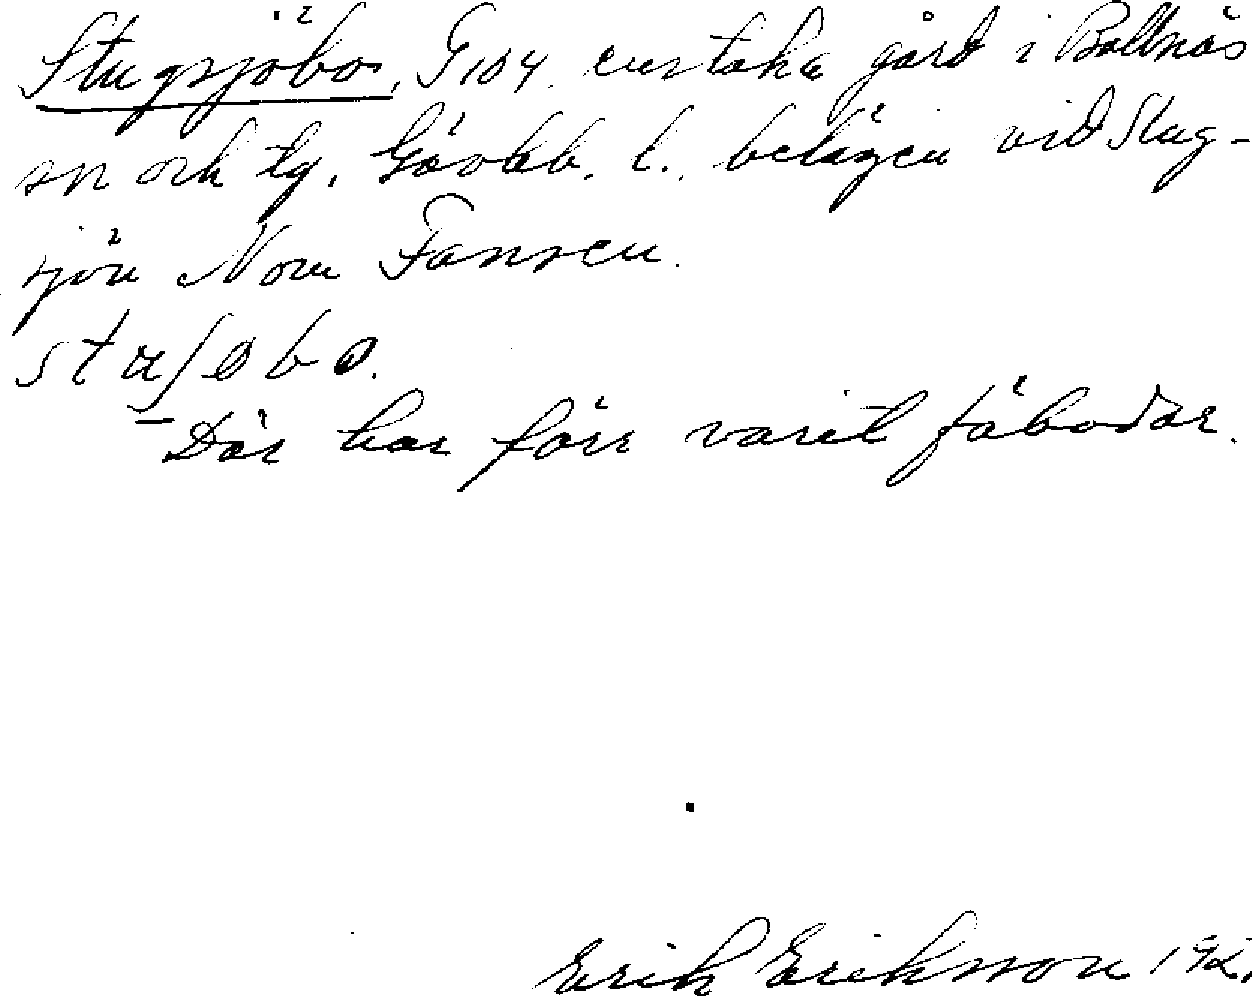 Stugsjöbo, G 104. enstaka gård i Bollnäs
sn och tg, Gävleb. l., belägen vid Stug-
sjön Norr Fansen.
stuʃøbo.
- Där har förr varit fäbodar.
Erik Eriksson